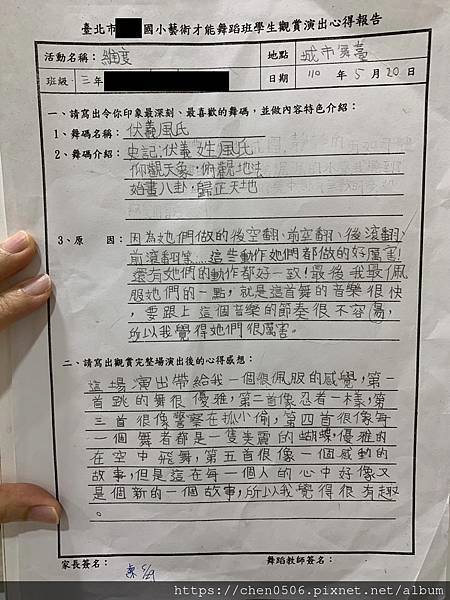 臺北市 國小藝術才能舞蹈班學生觀賞演出心得報告
活動名稱：維度 地點 城市舞臺
班級 三年 日期 110 年 5 月 20 日
一、請寫出令你印象最深刻、最喜歡的舞碼，並做內容特色介紹：
1、舞碼名稱：伏羲風氏
2、舞碼介紹：史記：伏羲姓風氏
仰觀天象，俯觀地法
始畫八卦，歸正天地
3、原 因：因為她們做的後空翻、前空翻、後滾翻、
前滾翻等……這些動作她們都做的好厲害!
還有她們的動作都好一致!最後我最佩
服她們的一點，就是這首舞的音樂很快，
要跟上這個音樂的節奏很不容易，
所以我覺得她們很厲害。
二、請寫出觀賞完整場演出後的心得感想：
這場演出帶給我一個很佩服的感覺，第一
首跳的舞很優雅，第二首像忍者一樣，第
三首很像警察在抓小偷，第四首很像每
一個舞者都是一隻美麗的蝴蝶，優雅的
在空中飛舞，第五首很像一個感動的
故事，但是這在每一個人的心中好像又
是個新的一個故事，所以我覺得很有趣
。
家長簽名： 舞蹈教師簽名：
https://chen0506.pixnet.net/album